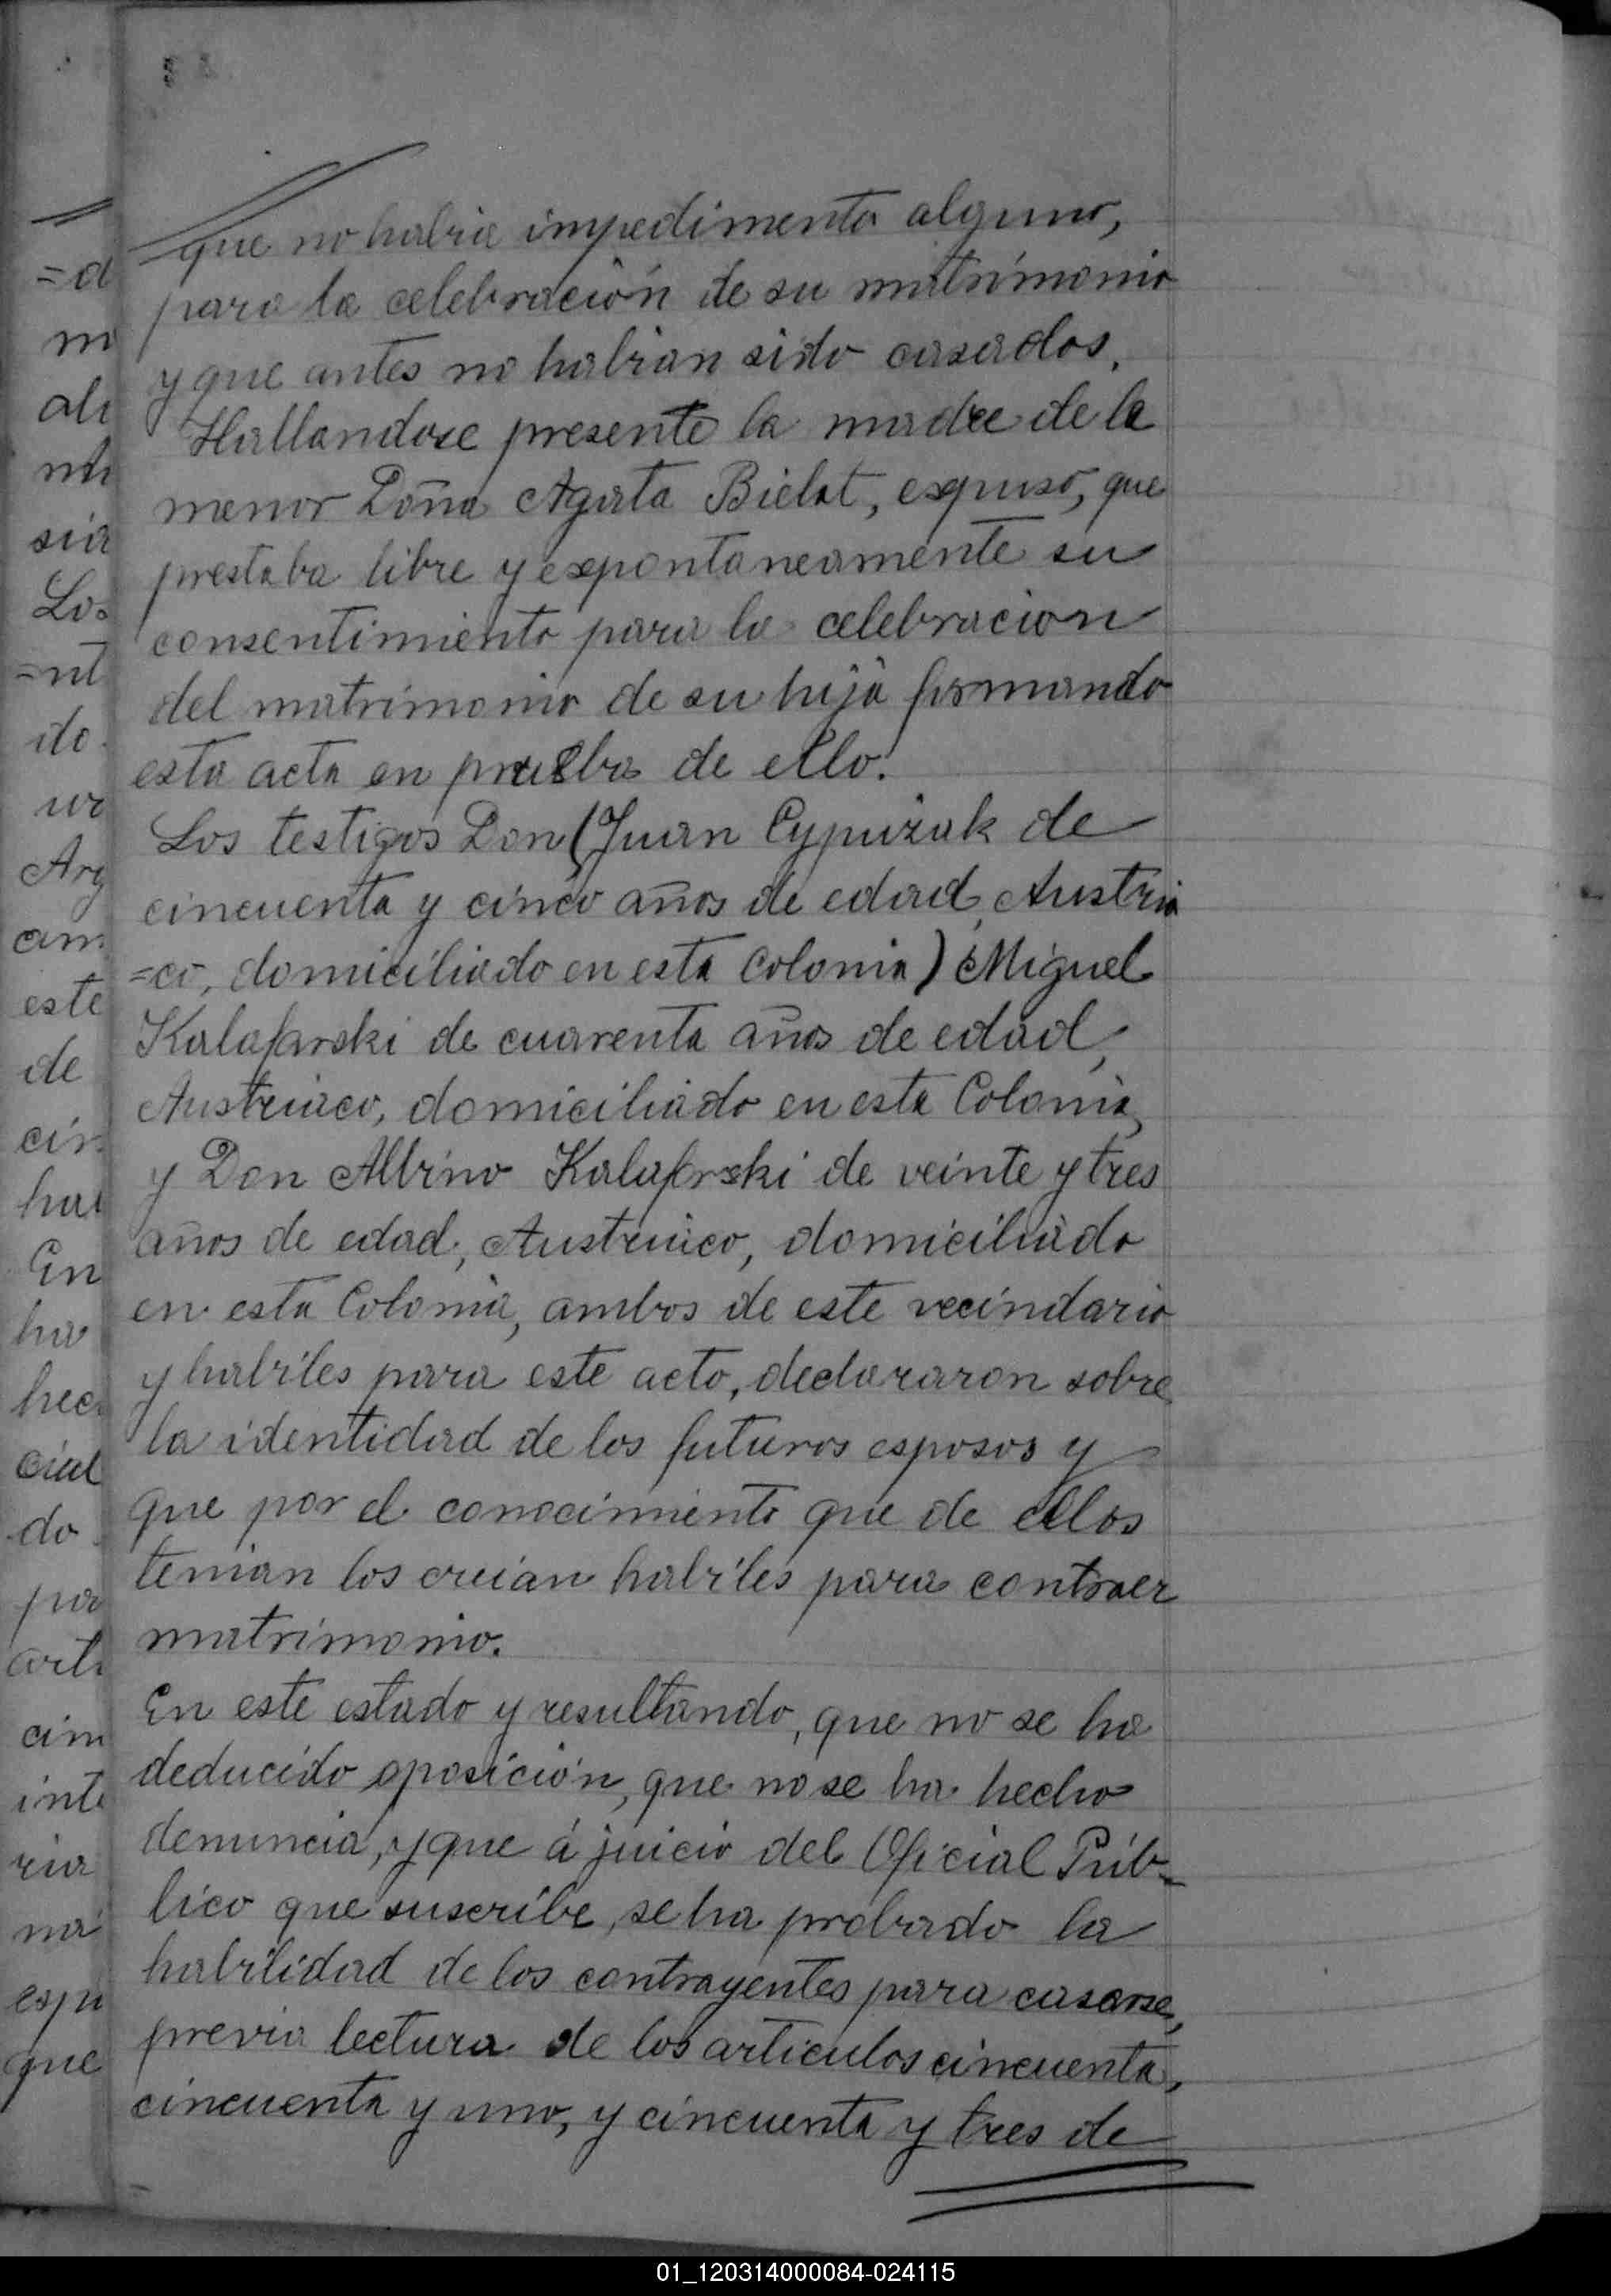 que no habia impedimento alguno,
para la celebración de su matrimonio
y que antes no habian sido casados.
Hallandose presente la madre de la
menor Doña Agata Bielat, expuso, que
prestaba libre y expontaneamente su
consentimiento para la celebracion
del matrimonio de su hija firmando
esta acta en prueba de ello.
Los testigos Don (Juan Cypuizak de
cincuenta y cinco años de edad, Austria
=co, domiciliado en esta Colonia) Miguel
Kalafarski de cuarenta años de edad,
Austriaco, domiciliado en esta Colonia,
y Don Albino Kalafarski de veinte y tres
años de edad, Austriaco, domiciliado
en esta Colonia, ambos de este vecindario
y habiles para este acto, declararon sobre
la identidad de los futuros esposos y
que por el conocimiento que de ellos
tenian los creian habiles para contraer
matrimonio.
En este estado y resultando, que no se ha
deducido oposición, que no se ha hecho
denuncia, y que á juicio del Oficial Púb-
lico que suscribe, se ha probado la
habilidad de los contrayentes para casarse,
previa lectura de los articulos cincuenta,
cincuenta y uno, y cincuenta y tres de
01_120314000084-024115